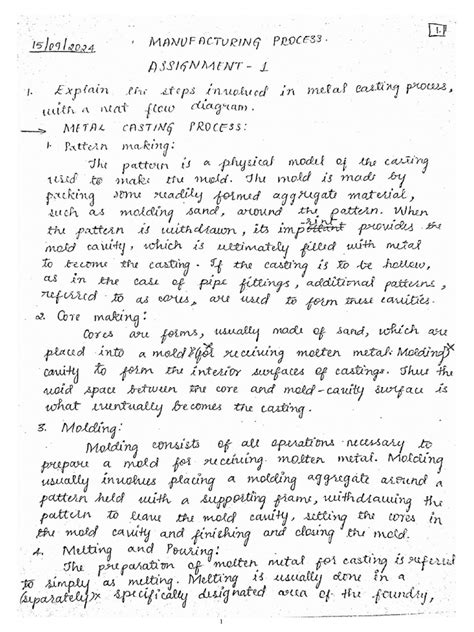 1.
15/09/2024
MANUFACTURING PROCESS.
ASSIGNMENT - 1
1. Explain the steps involved in metal casting process,
with a neat flow diagram.
→ METAL CASTING PROCESS:
1. Pattern making:
The pattern is a physical model of the casting
used to make the mold. The mold is made by
packing some readily formed aggregate material,
such as molding sand, around the pattern. When
the pattern is withdrawn, its imprint provides the
mold cavity, which is ultimately filled with metal
to become the casting. If the casting is to be hollow,
as in the case of pipe fittings, additional patterns,
referred to as cores, are used to form these cavities.
2. Core making:
Cores are forms, usually made of sand, which are
placed into a mold (for receiving molten metal. Molding)
cavity to form the interior surfaces of castings. Thus the
void space between the core and mold-cavity surface is
what eventually becomes the casting.
3. Molding:
Molding consists of all operations necessary to
prepare a mold for receiving molten metal. Molding
usually involves placing a molding aggregate around a
pattern held with a supporting frame, withdrawing the
pattern to leave the mold cavity, setting the cores in
the mold cavity and finishing and closing the mold.
4. Melting and Pouring:
The preparation of molten metal for casting is referred
to simply as melting. Melting is usually done in a
(separately) specifically designated area of the foundry,
1